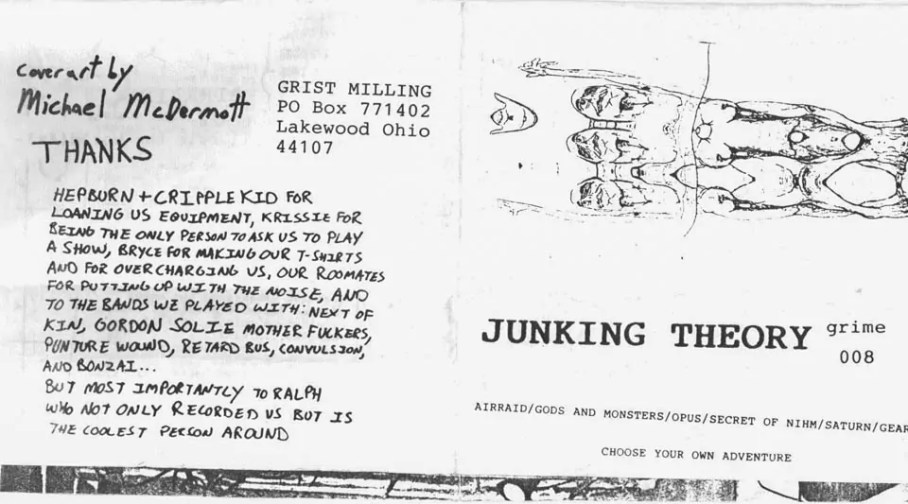 cover art by
Michael McDermott
GRIST MILLING
PO Box 771402
Lakewood Ohio
44107
THANKS
HEPBURN + CRIPPLE KID FOR
LOANING US EQUIPMENT, KRISSIE FOR
BEING THE ONLY PERSON TO ASK US TO PLAY
A SHOW, BRYCE FOR MAKING OUR T-SHIRTS
AND FOR OVERCHARGING US, OUR ROOMATES
FOR PUTTING UP WITH THE NOISE, AND
TO THE BANDS WE PLAYED WITH: NEXT OF
KIN, GORDON SOLIE MOTHER FUCKERS,
PUNTURE WOUND, RETARD BUS, CONVULSION,
AND BONZAI...
BUT MOST IMPORTANTLY TO RALPH
WHO NOT ONLY RECORDED US BUT IS
THE COOLEST PERSON AROUND
JUNKING THEORY
grime
008
AIRRAID/GODS AND MONSTERS/OPUS/SECRET OF NIHM/SATURN/GEAR
CHOOSE YOUR OWN ADVENTURE